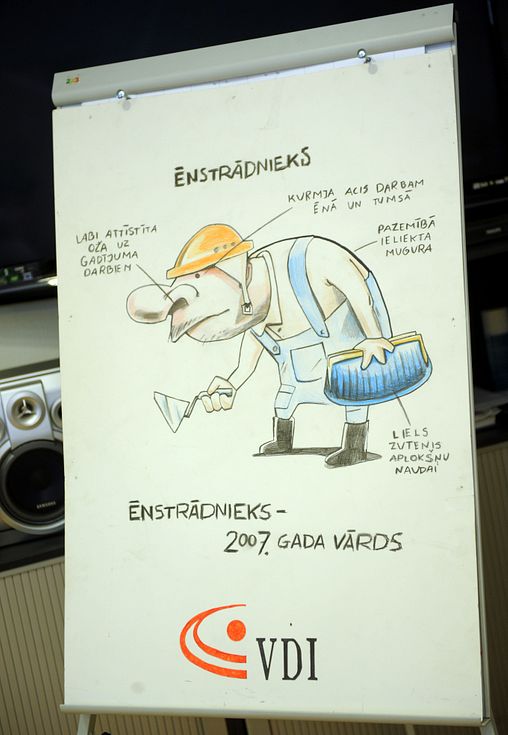 ĒNSTRĀDNIEKS
KURMJA ACIS DARBAM
ĒNĀ UN TUMSĀ
LABI ATTĪSTĪTA
OŽA UZ
GADĪJUMA
DARBIEM
PAZEMĪBĀ
IELIEKTA
MUGURA
LIELS
ZUTENIS
APLOKŠŅU
NAUDAI
ĒNSTRĀDNIEKS -
2007. GADA VĀRDS
VDI
SAMSUNG